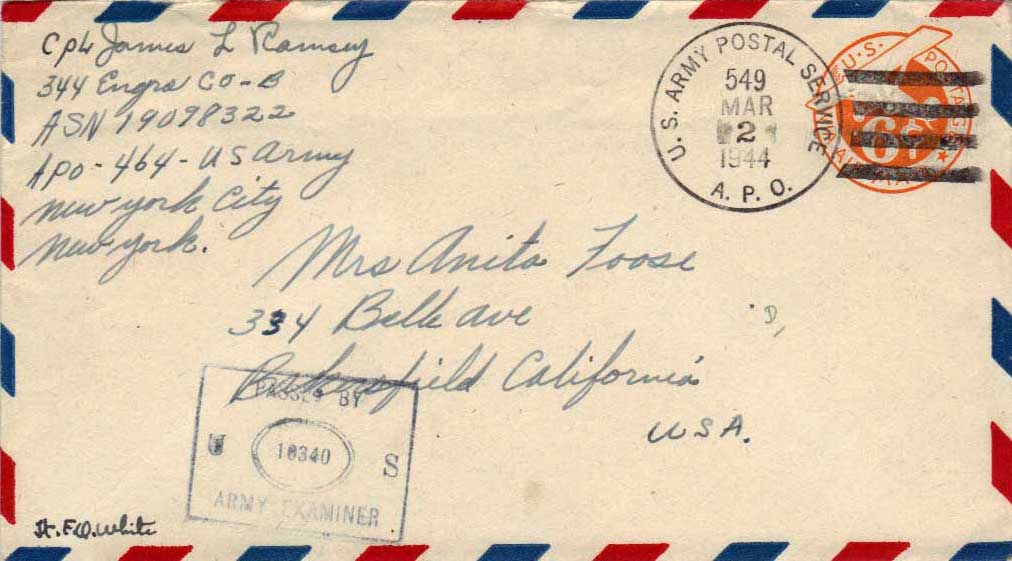 Cpl James L Ramsey
344 Engrs CO-B
ASN 19098322
APO-464-US Army
New York City
New York.
U.S. ARMY POSTAL SERVICE
549
MAR
2
1944
A. P. O.
U.S. POSTAGE
6¢
AIR MAIL
Mrs Anita Foose
334 Belle Ave
Bakersfield California
USA.
D,
PASSED BY
U 10340 S
ARMY EXAMINER
White